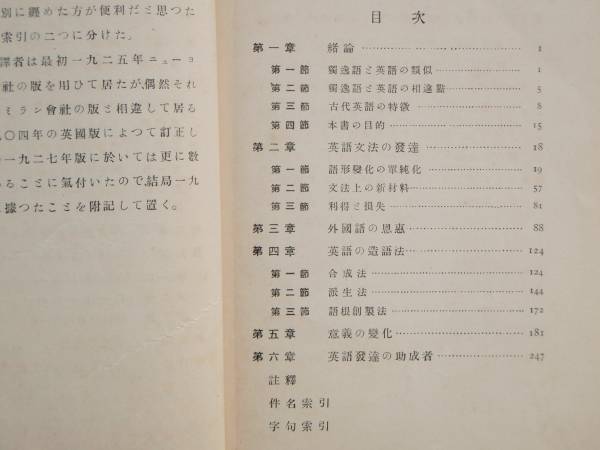 別に纏めた方が便利だと思つた
索引の二つに分けた。
譯者は最初一九二五年ニューヨ
社の版を用ひて居たが、偶然それ
ミラン會社の版と相違して居る
〇四年の英國版によつて訂正し
一九二七年版に於いては更に數
ることに氣付いたので、結局一九
據つたことを附記して置く。
目次
第一章 緒論 1
第一節 獨逸語と英語の類似 1
第二節 獨逸語と英語の相違點 5
第三節 古代英語の特徵 8
第四節 本書の目的 15
第二章 英語文法の發達 18
第一節 語形變化の單純化 19
第二節 文法上の新材料 57
第三節 利得と損失 81
第三章 外國語の恩惠 88
第四章 英語の造語法 124
第一節 合成法 124
第二節 派生法 144
第三節 語根創製法 172
第五章 意義の變化 181
第六章 英語發達の助成者 247
註釋
件名索引
字句索引